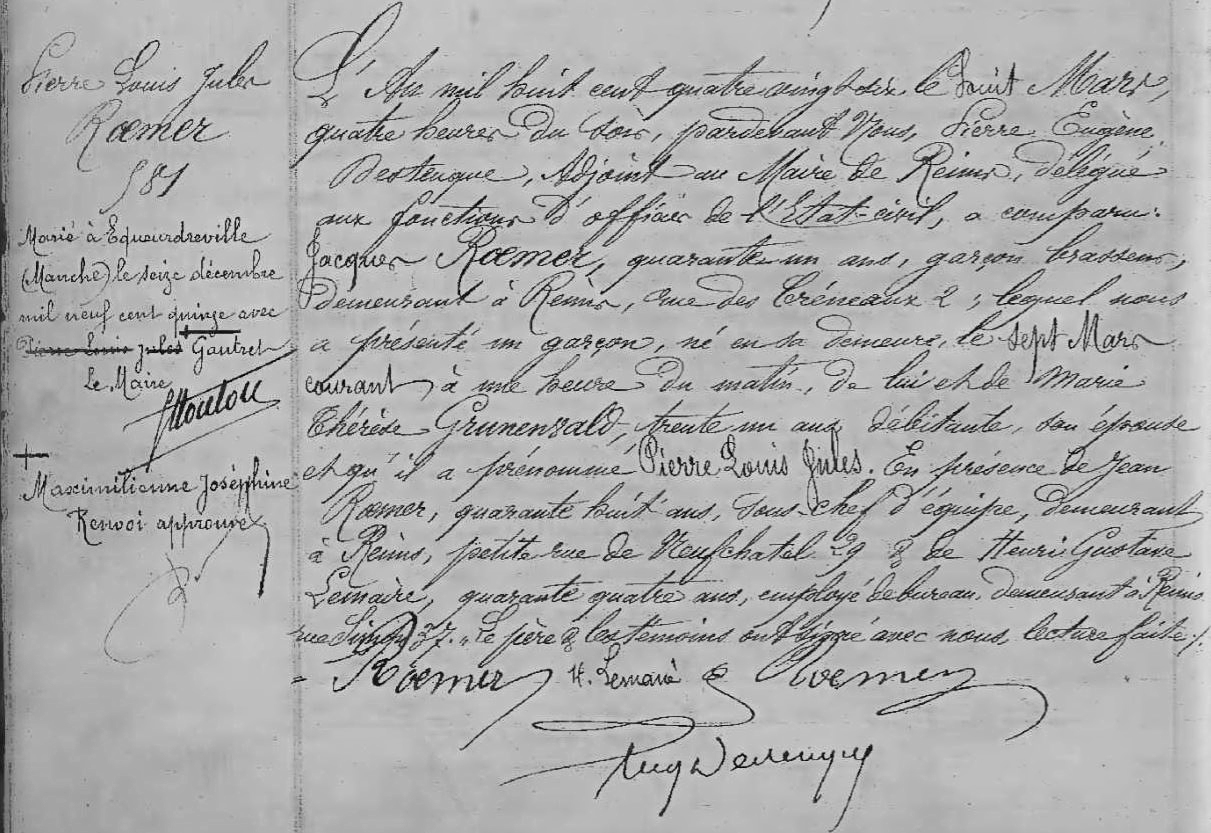 Pierre Louis Jules
Roemer
581
Marié à Equeurdreville
(Manche) le seize décembre
mil neuf cent quinze avec
Pierre Louis Jules Gautret
Le Maire
+
Maximilienne Joséphine
Renvoi approuvé
L'An mil huit cent quatre vingt six le huit Mars,
quatre heures du soir, pardevant Nous, Pierre Eugène
Desteuque, Adjoint au Maire de Reims, délégué
aux fonctions d'officier de l'Etat-civil, a comparu:
Jacques Roemer, quarante un ans, garçon brasseur,
demeurant à Reims, rue des Créneaux 2; lequel nous
a présenté un garçon, né en sa demeure, le sept Mars
courant, à une heure du matin, de lui et de Marie
Thérèse Grunenwald, trente un ans débitante, son épouse
et qu'il a prénommé Pierre Louis Jules. En présence de Jean
Roemer, quarante huit ans, sous-chef d'équipe, demeurant
à Reims, petite rue de Neufchatel 29 & de Henri Gustave
Lemaire, quarante quatre ans, employé de bureau, demeurant à Reims
rue Simon 37. Le père & les témoins ont signé avec nous lecture faite ./.
Roemer H. Lemaire Roemer